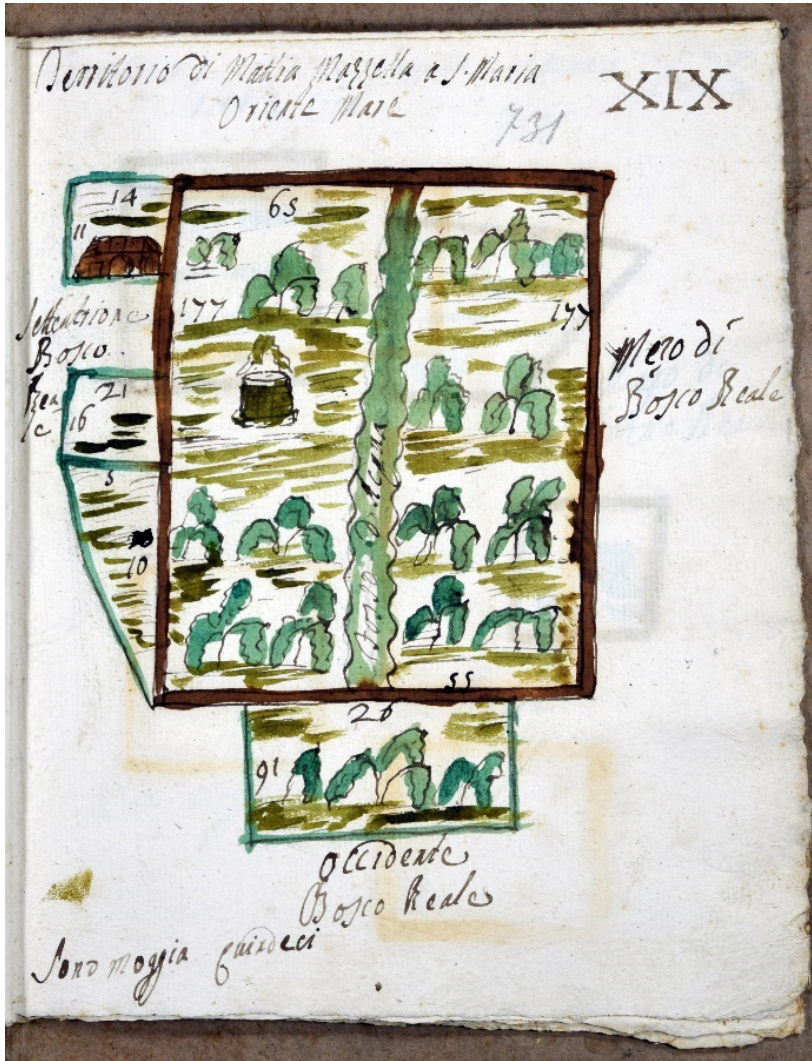 Territorio di Mattia Mazzella a S. Maria
Oriente Mare
XIX
731
14
11
65
177
177
Settentrione
Bosco
Rea
le
21
16
Mezo dì
Bosco Reale
5
10
Bosco d'
55
26
91
Occidente
Bosco Reale
Sono moggia quindeci